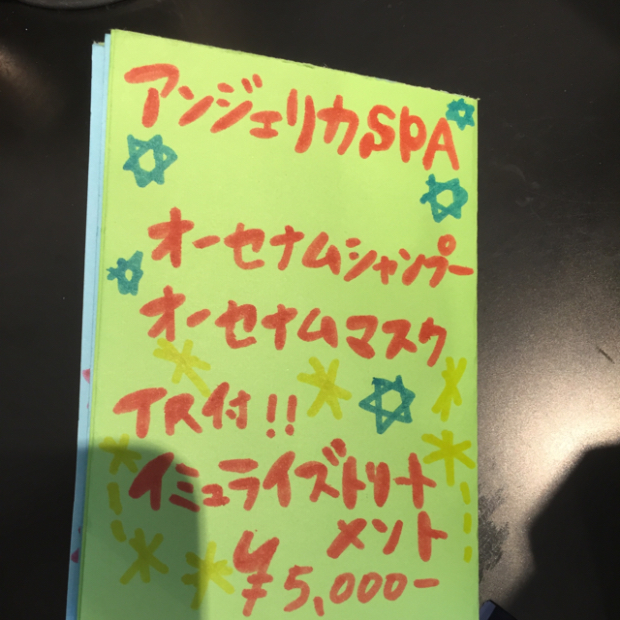 アンジェリカSPA
オーセナムシャンプー
オーセナムマスク
TR付!!
イミュライズトリート
メント
¥5,000-